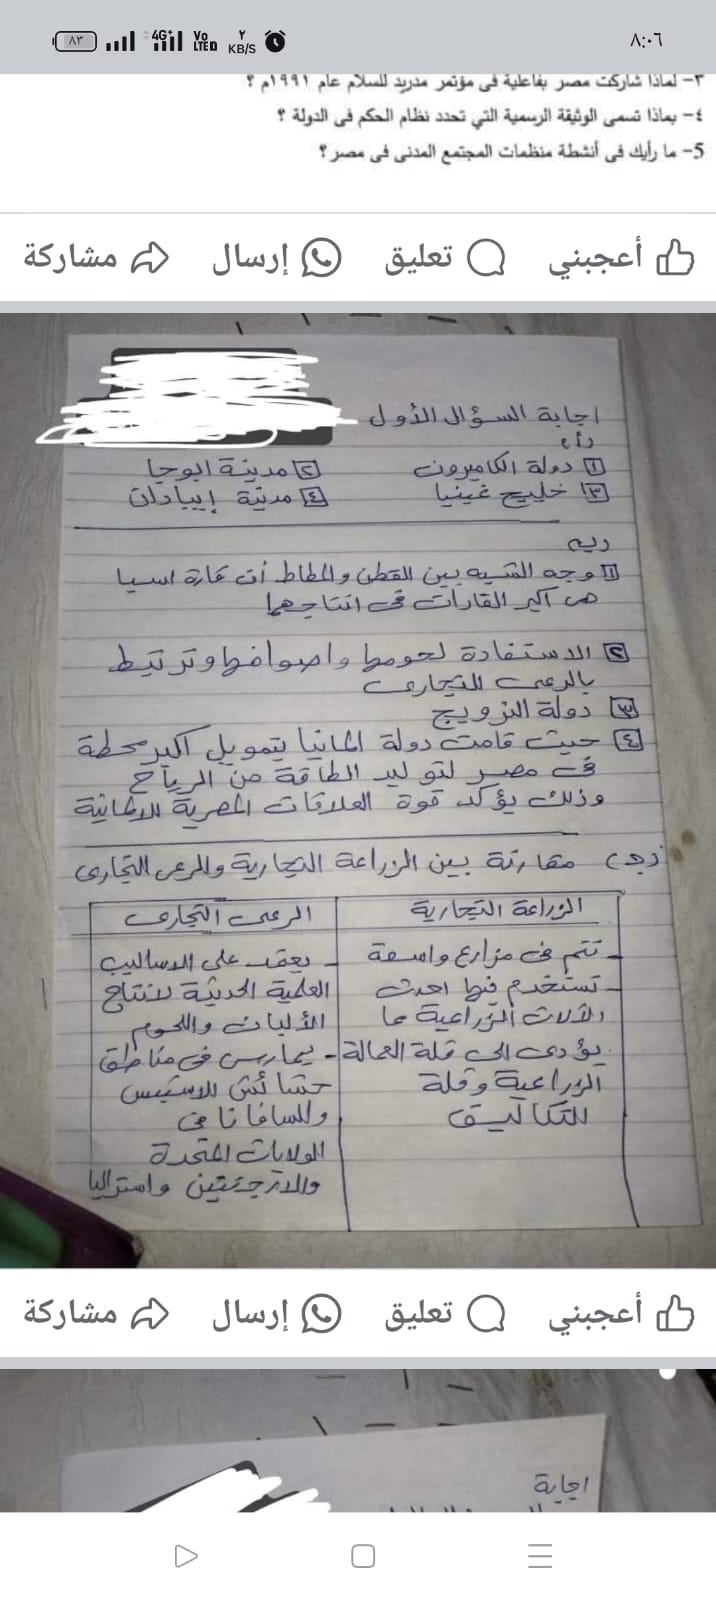 ٨:٠٦
٢ KB/S
Vo LTE
4G
٨٣
٣- لماذا شاركت مصر بفاعلية فى مؤتمر مدريد للسلام عام ١٩٩١م ؟
٤- بماذا تسمى الوثيقة الرسمية التي تحدد نظام الحكم فى الدولة ؟
5- ما رأيك فى أنشطة منظمات المجتمع المدنى فى مصر؟
أعجبني تعليق إرسال مشاركة
اجابة السؤال الأول
(أ)
١ دولة الكاميرون ٢ مدينة ابوجا
٣ خليج غينيا ٤ مدينة إيبادان
(ب)
١ وجه الشبه بين القطن والمطاط أن قارة اسيا
هى اكبر القارات فى انتاجهما
٢ الاستفادة لحومها واصوافها وترتبط
بالرعى التجارى
٣ دولة النرويج
٤ حيث قامت دولة المانيا بتمويل اكبر محطة
فى مصر لتوليد الطاقة من الرياح
وذلك يؤكد قوة العلاقات المصرية الالمانية
(جـ) مقارنة بين الزراعة التجارية والرعى التجارى
الزراعة التجارية الرعى التجارى
- تتم فى مزارع واسعة
- تستخدم فيها احدث
الآلات الزراعية مما
يؤدى إلى قلة العمالة
الزراعية وقلة
التكاليف
- يعتمد على الاساليب
العلمية الحديثة لانتاج
الألبان واللحوم
- يمارس فى مناطق
حشائش الاستبس
والسافانا فى
الولايات المتحدة
والارجنتين واستراليا
أعجبني تعليق إرسال مشاركة
اجابة